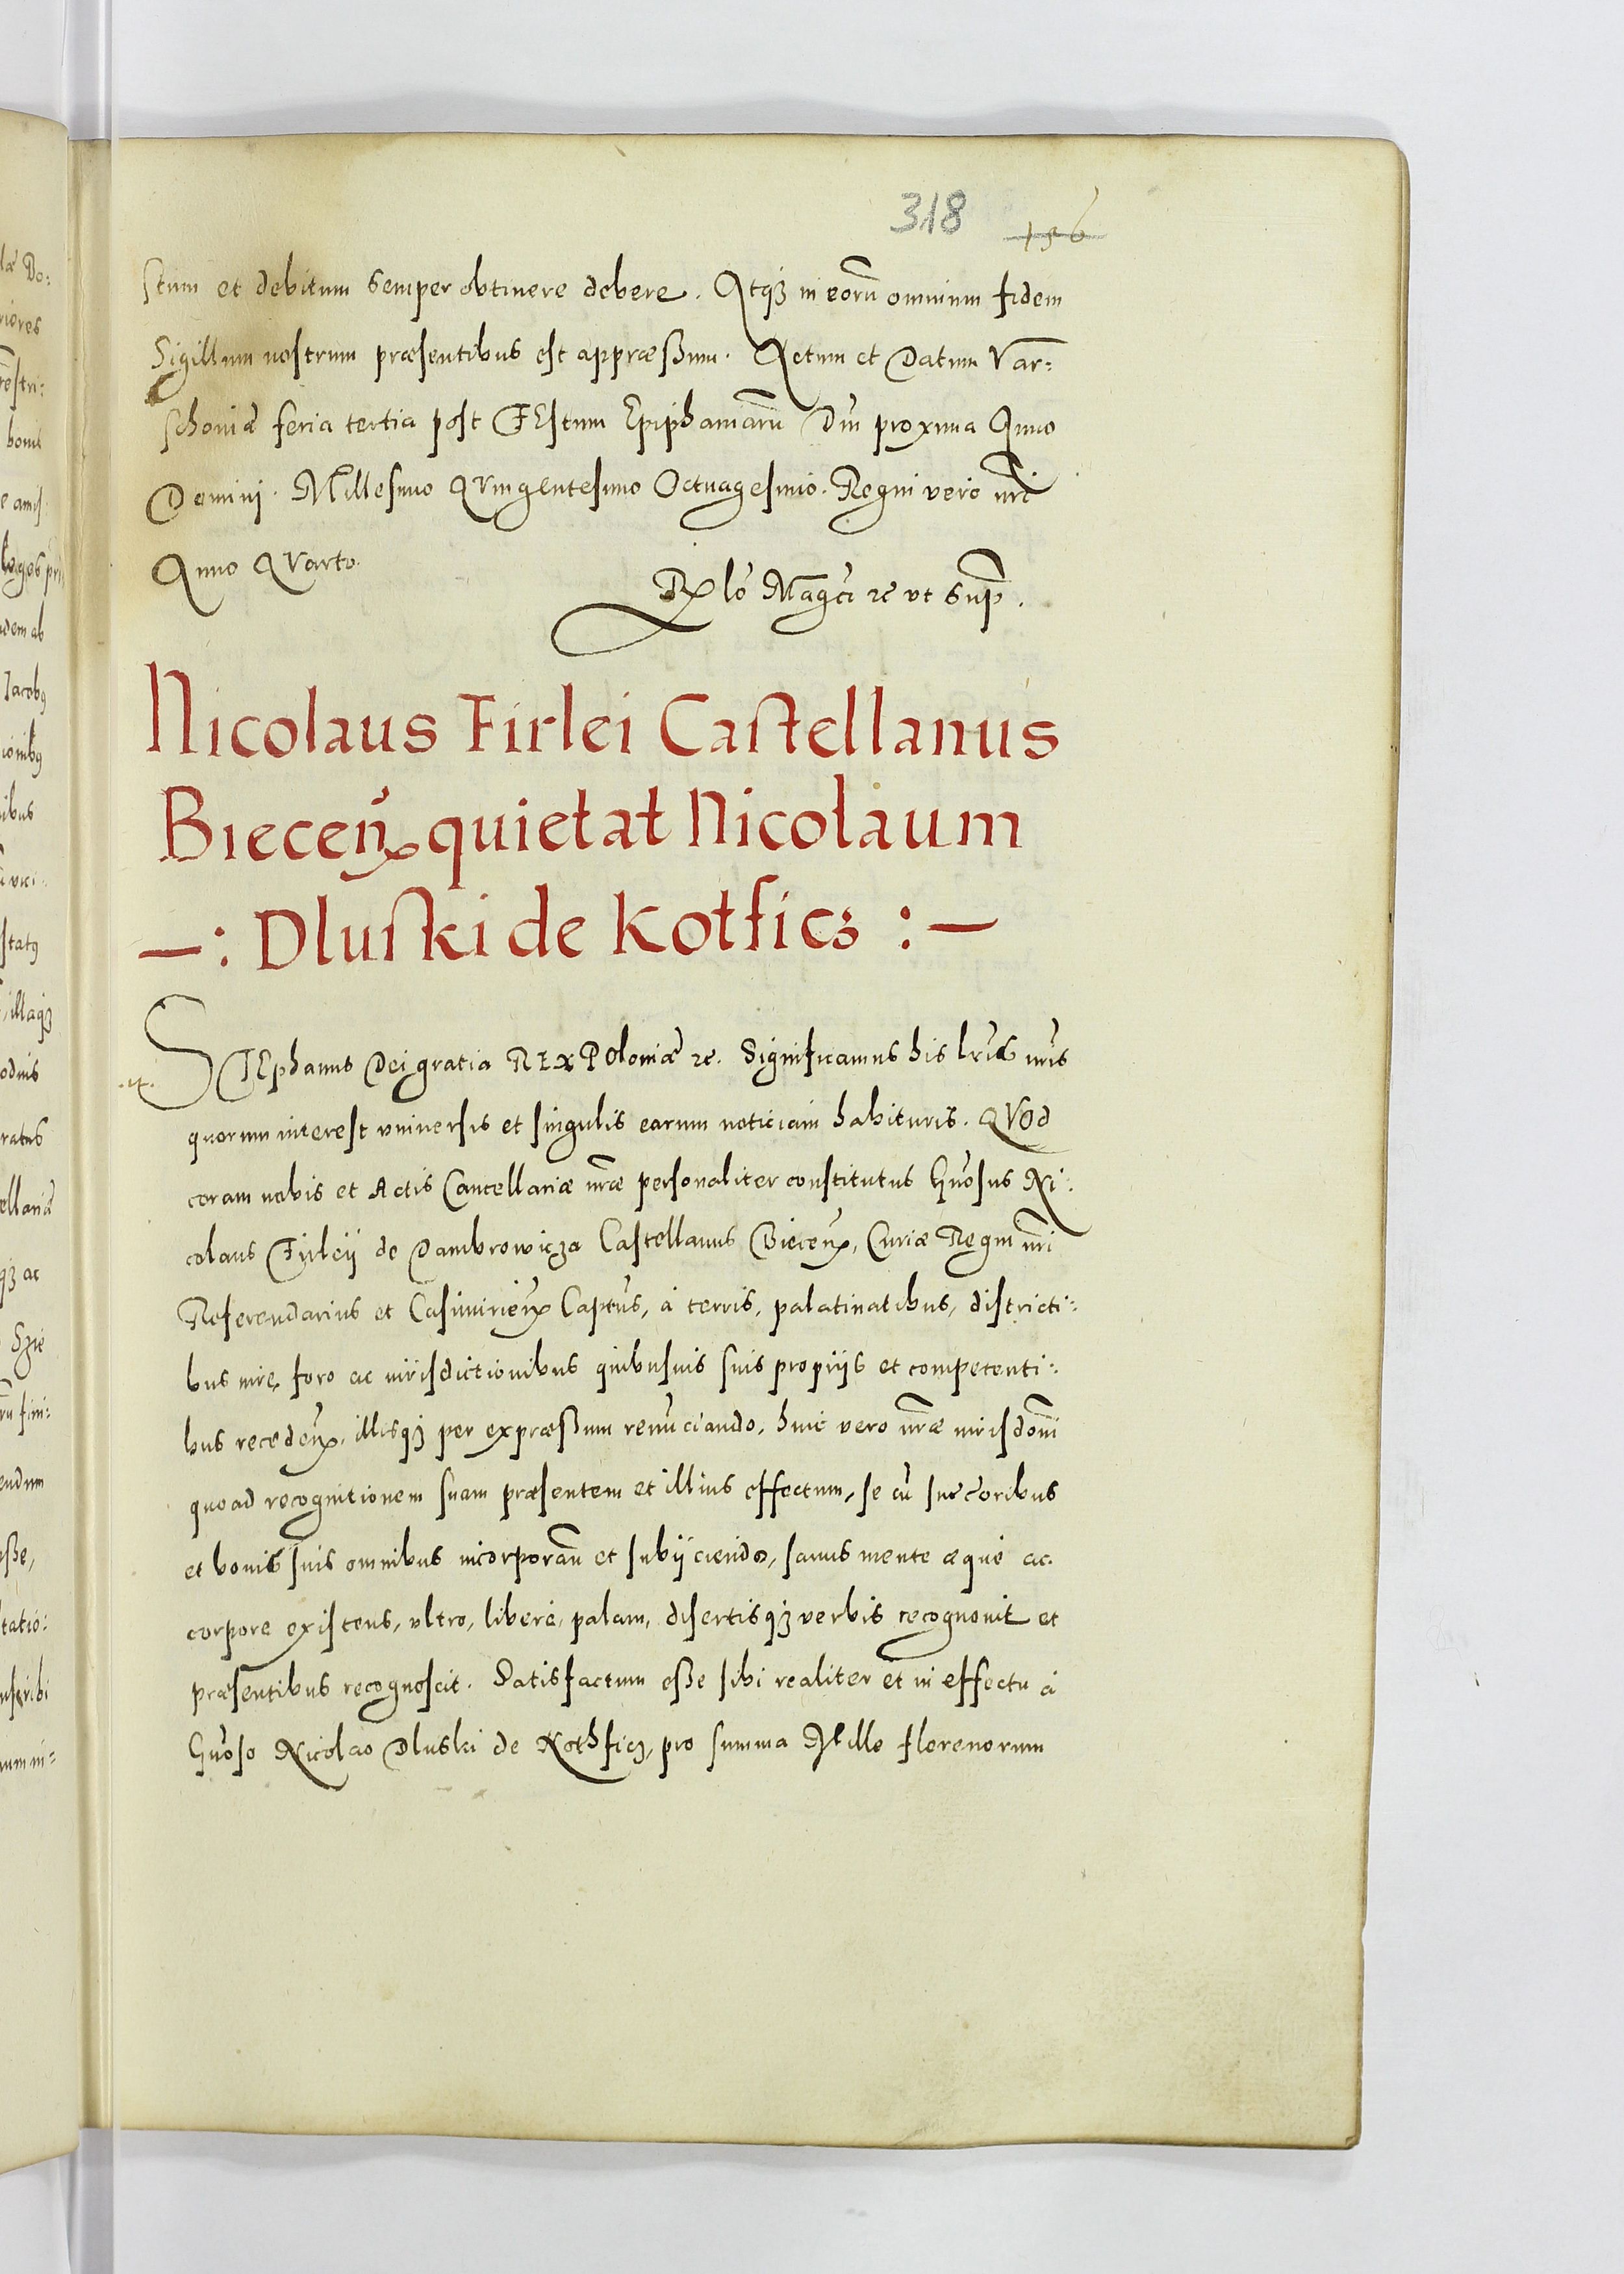 318 156
stum et debitum semper obtinere debere. Atq3 in eorū omnium fidem
Sigillum nostrum præsentibus est appræßum. Actum et Datum Var:
schoviæ feria tertia post FEstum Epiphaniarū Dni proxima Anno
Domini. Millesimo QVingentesimo Octuagesimo. Regni vero nri
Anno QVarto.
Rlo Magci &c vt sup.
Nicolaus Firlei Castellanus
Biecen quietat Nicolaum
—: Dluski de Kotficz :—
STEphanus Dei gratia REX Poloniæ &c. Significamus his lris nris
quorum interest vniversis et singulis earum noticiam habituris. QVod
coram nobis et Actis Cancellariæ nræ personaliter constitutus Gnosus Ni:
colaus Firleii de Dambrowicza Castellanus Biecen, Curiæ Regni nri
Referendarius et Casimirien Captus, à terris, palatinatibus, districti:
bus iure, foro ac iurisdictionibus quibusuis suis propriis et competenti:
bus receden, illisq3 per expræßum renūciando, huic vero nræ iurisdoni
quo ad recognitionem suam præsentem et illius effectum, se cū succoribus
et bonis suis omnibus incorporan et subiiciendo, sanus mente æque ac
corpore existens, vltro, libere, palam, disertisq3 verbis recognouit et
præsentibus recognoscit. Satisfactum eße sibi realiter et in effectu à
Gnoso Nicolao Dluski de Kothficz, pro summa Mille florenorum